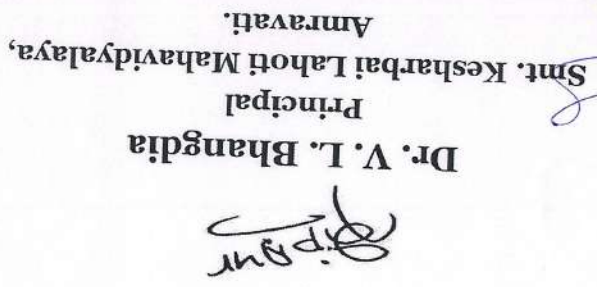 Dr. V. L. Bhangdia
Principal
Smt. Kesharbai Lahoti Mahavidyalaya,
Amravati.